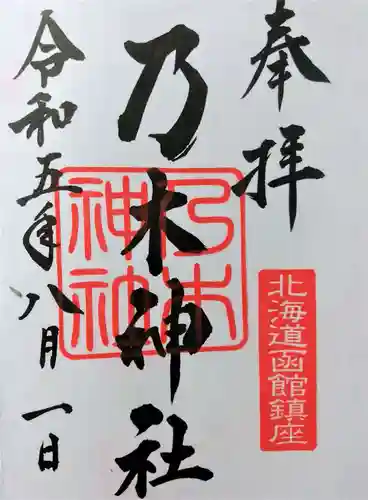 奉拝
北海道函館鎮座
乃木神社
乃木
神社
令和五年八月一日